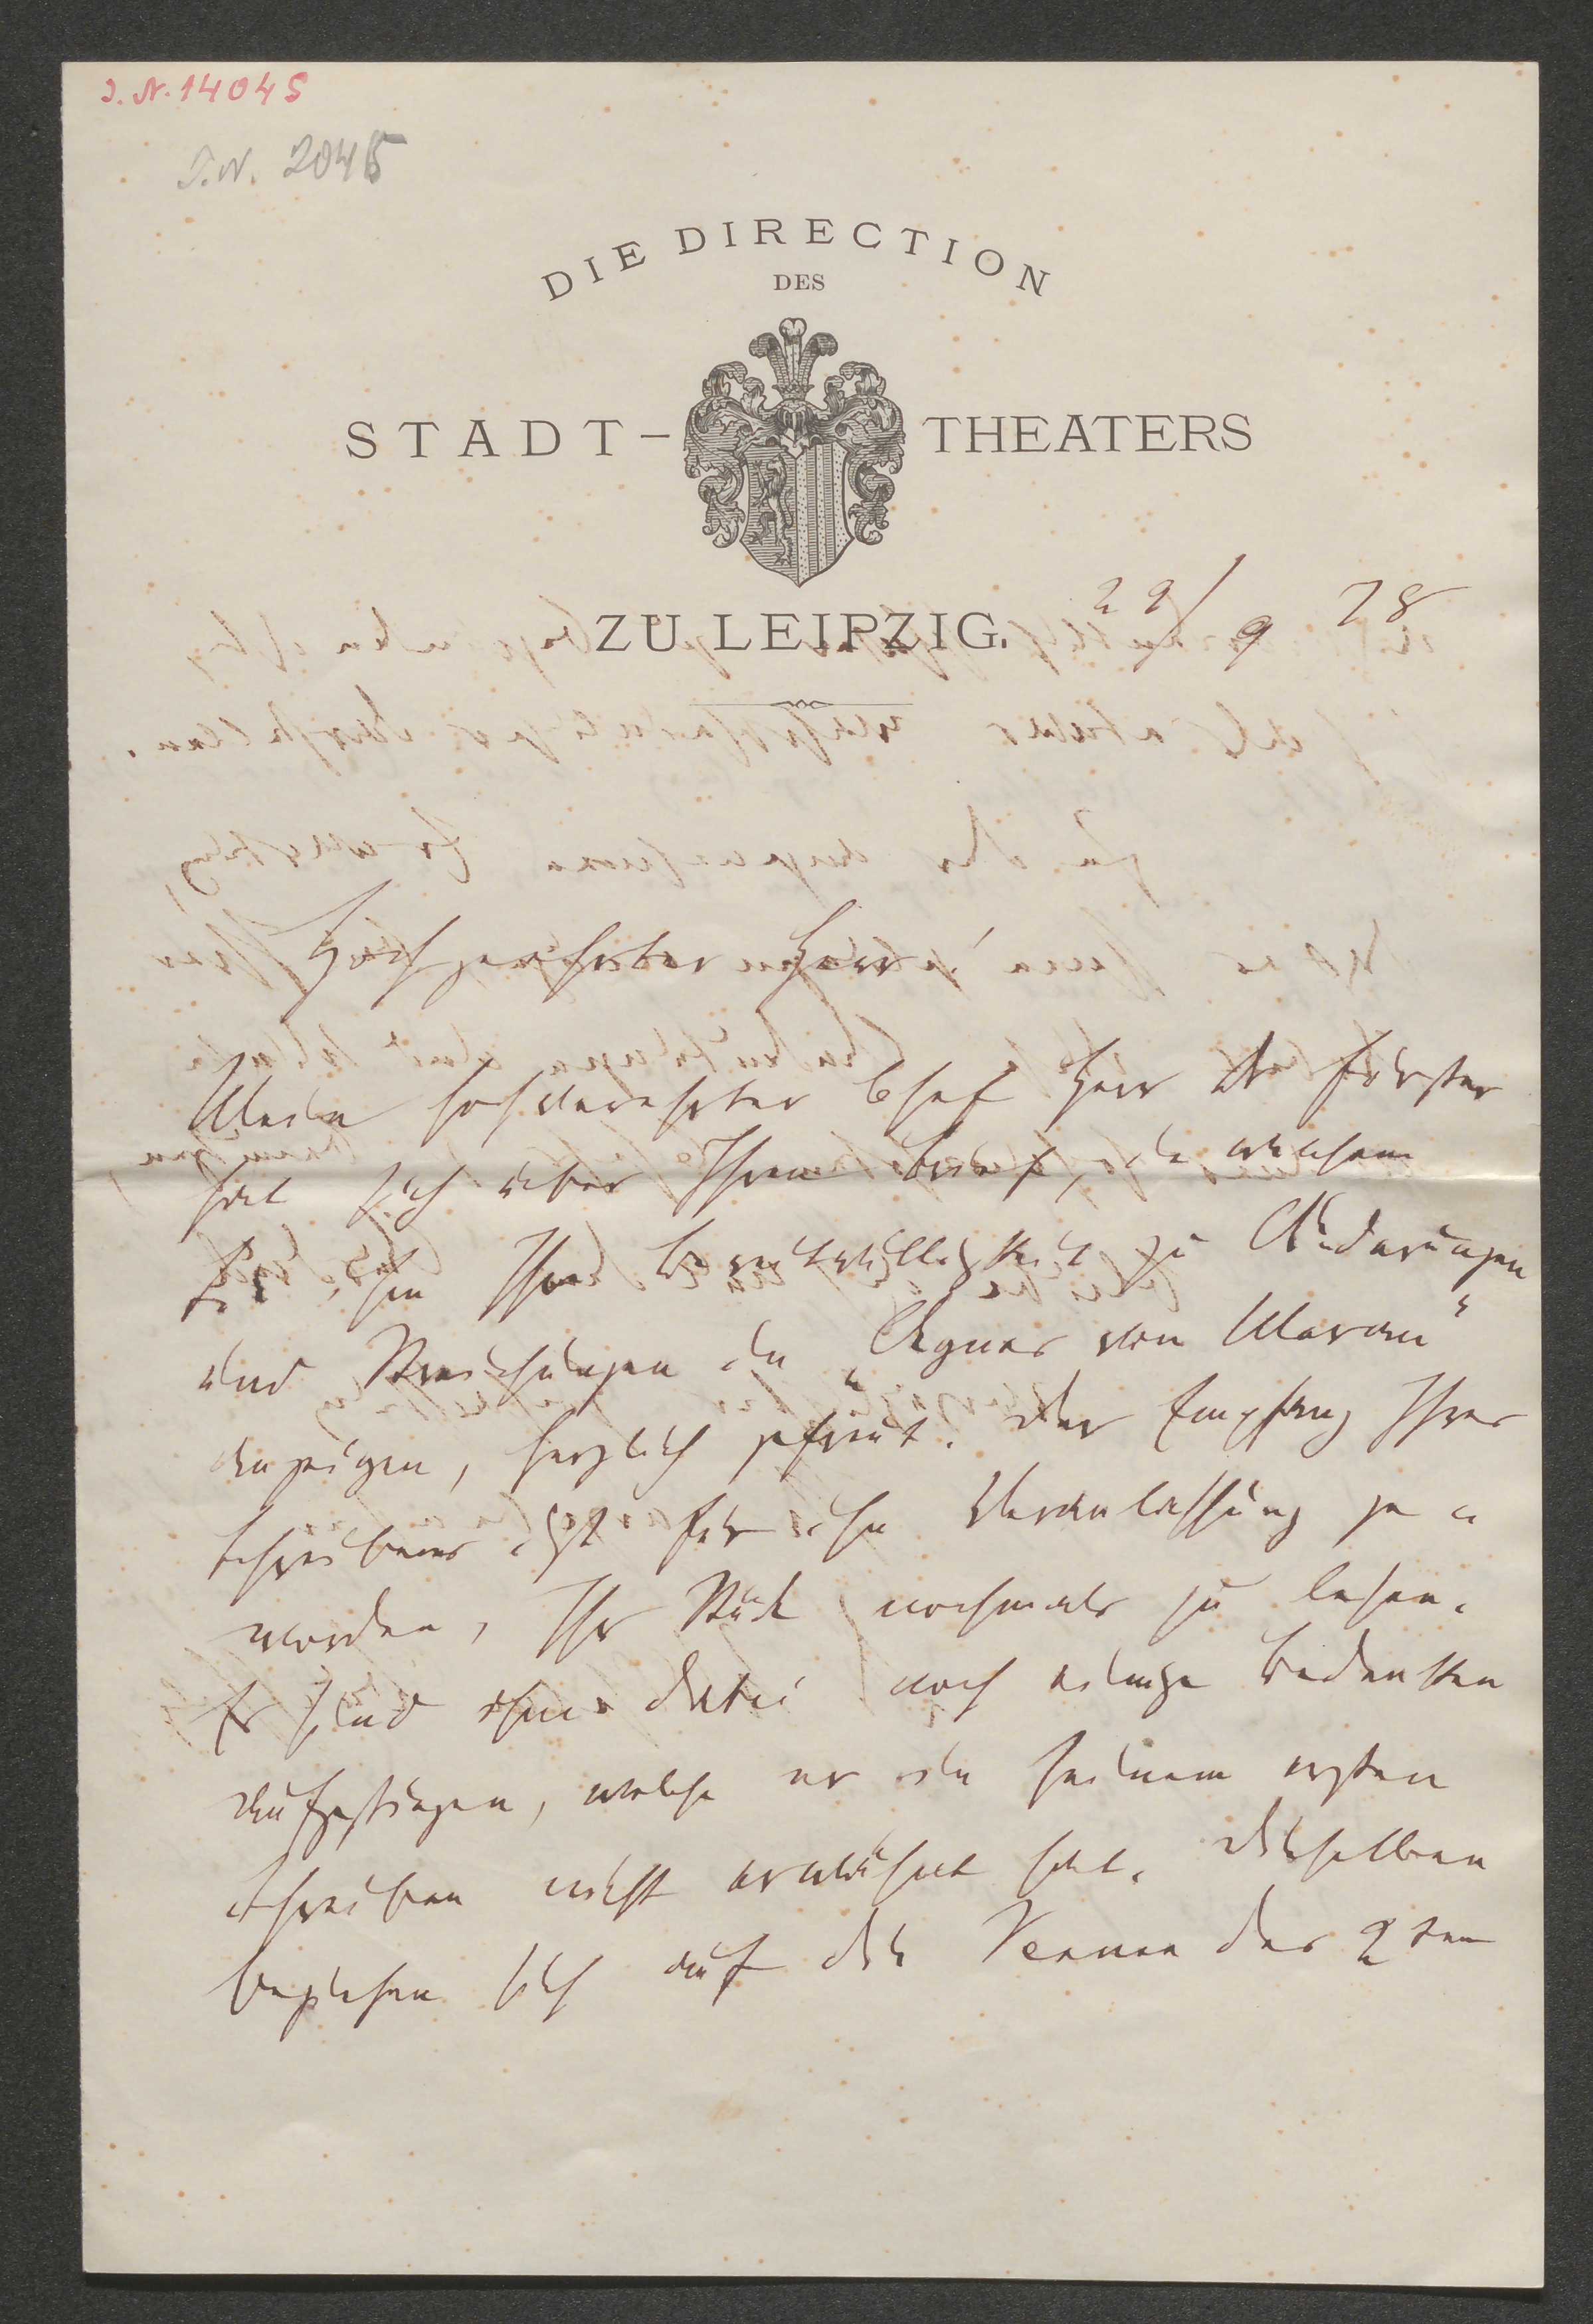 J. N. 14045
J. N. 2045
DIE DIRECTION
DES
STADT-THEATERS
ZU LEIPZIG.
22/9 78
Hochgeehrter Herr!
Mein hochverehrter Chef Herr Dr Förster
hat sich über Ihren Brief, in welchem
Sie ihm Ihre Bereitwilligkeit zu Änderungen
und Streichungen in „Agnes von Meran"
anzeigen, herzlich gefreut. Der Empfang Ihres
Schreibens ist für ihn Veranlassung ge=
worden, Ihr Stück nochmals zu lesen.
Es sind ihm dabei noch einige Bedenken
aufgestiegen, welche er in seinem ersten
Schreiben nicht erwähnt hat. Dieselben
beziehen sich auf die Scenen des 2ten